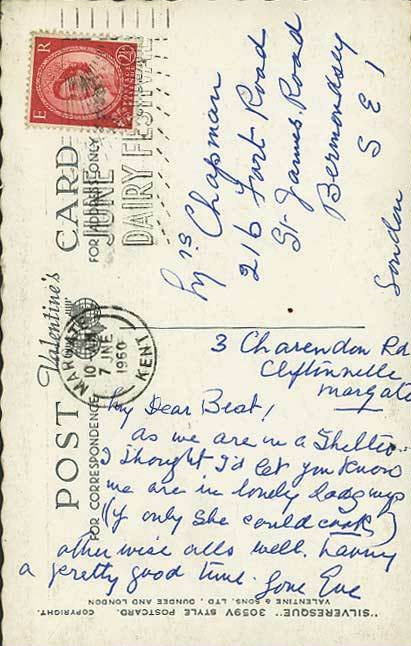 E R
2½D
POST CARD
Valentine's
FOR CORRESPONDENCE
FOR ADDRESS ONLY
JUNE
DAIRY FESTIVAL
MARGATE
10
7 JNE
1960
KENT
Mrs Chapman
216 Fort Road
St James Road
Bermondsey
S E 1
London
3 Charendon Rd
Cliftonville
Margate
My Dear Beat!
As we are in a Shelter
I thought I'd let you know
we are in lovely lodgings
(if only she could cook)
otherwise alls well. having
a pretty good time. Love Eve
"SILVERESQUE" 3059V STYLE POSTCARD. COPYRIGHT.
VALENTINE & SONS, LTD., DUNDEE AND LONDON